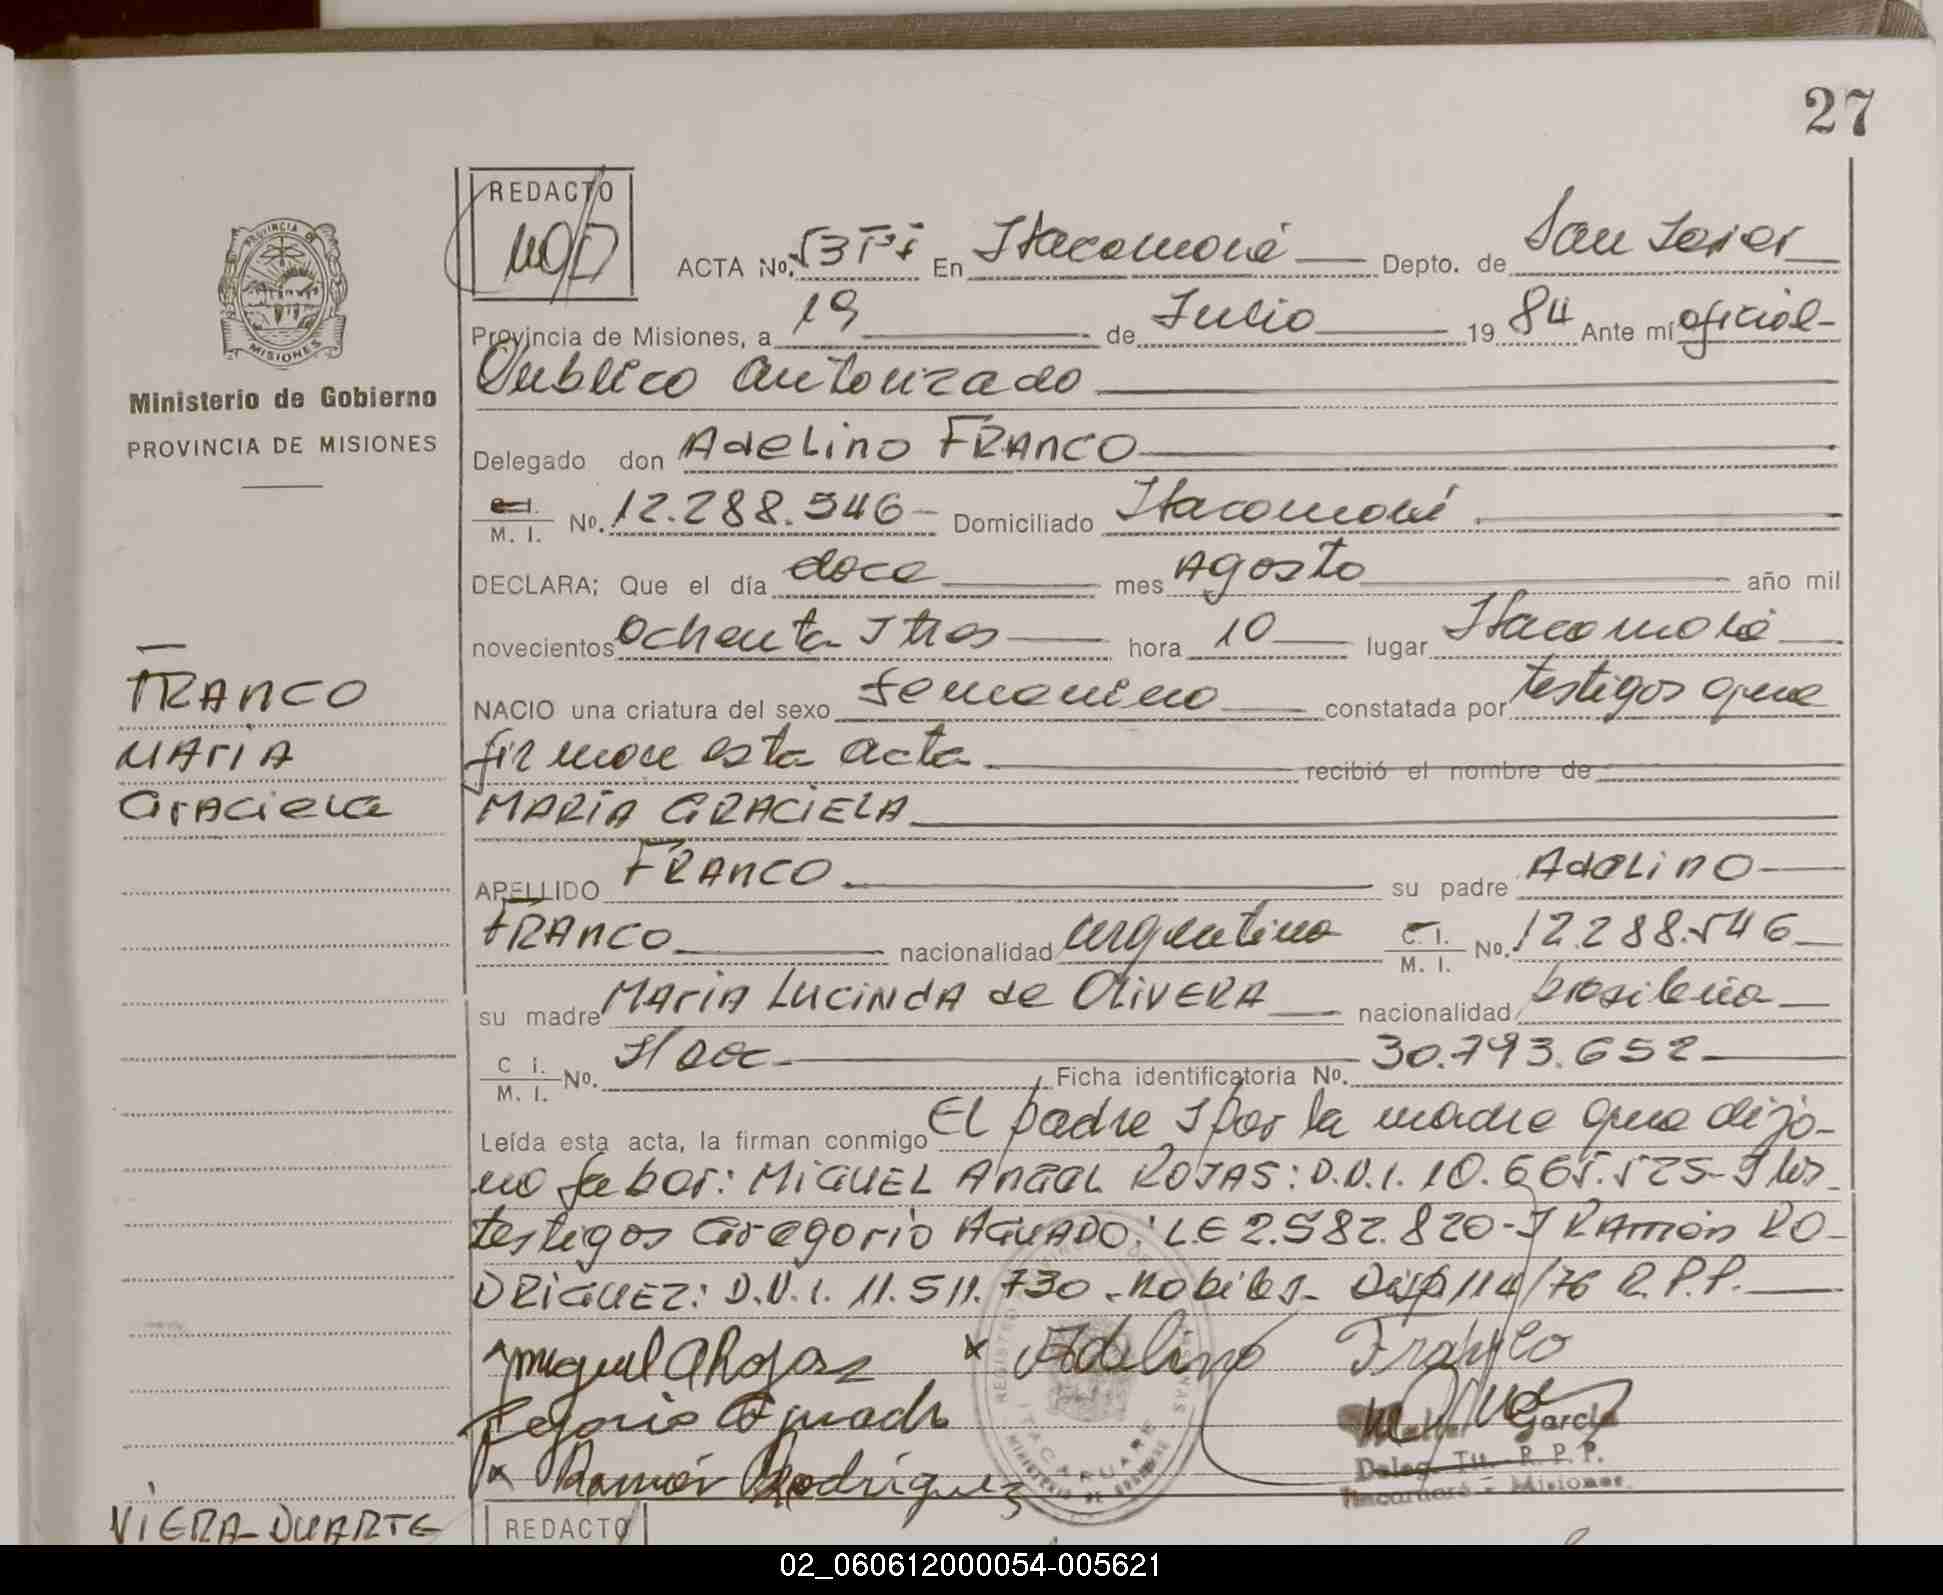 27
REDACTO
PROVINCIA DE
MISIONES
Ministerio de Gobierno
PROVINCIA DE MISIONES
ACTA No. 53 En Itacaruaré Depto. de San Javier
Provincia de Misiones, a 19 de Julio 1984 Ante mí oficial
Publico Autorizado
Delegado don Adelino FRANCO
C. I.
M. I. No. 12.288.546 Domiciliado Itacaruaré
DECLARA; Que el día doce mes Agosto año mil
novecientos ochenta y tres hora 10 lugar Itacaruaré
NACIO una criatura del sexo femenino constatada por testigos que
firman esta acta recibió el nombre de
MARIA GRACIELA
APELLIDO FRANCO su padre Adelino
FRANCO nacionalidad argentino C. I.
M. I. No. 12.288.546
su madre MARIA LUCINDA de OLIVERA nacionalidad brasileña
C I.
M. I. No. Ficha identificatoria No. 30.793.652
Leída esta acta, la firman conmigo El padre y por la madre que dijo
no saber: MIGUEL ANGEL ROJAS: D.N.I. 10.665.525- y los
testigos Gregorio AGUADO: L.E 2.582.820- y RAMÓN RO-
DRIGUEZ: D.N.I. 11.511.730 - Disp 114/76 R.P.P.
Miguel A Rojas x Adelino Franco
Gregorio Aguado
x Ramón Rodriguez
García
Deleg. Tit. R. P. P.
Itacaruaré - Misiones
ITACARUARE
MINISTERIO DE GOBIERNO
FRANCO
MARIA
Graciela
VIERA-DUARTE
REDACTO
02_060612000054-005621